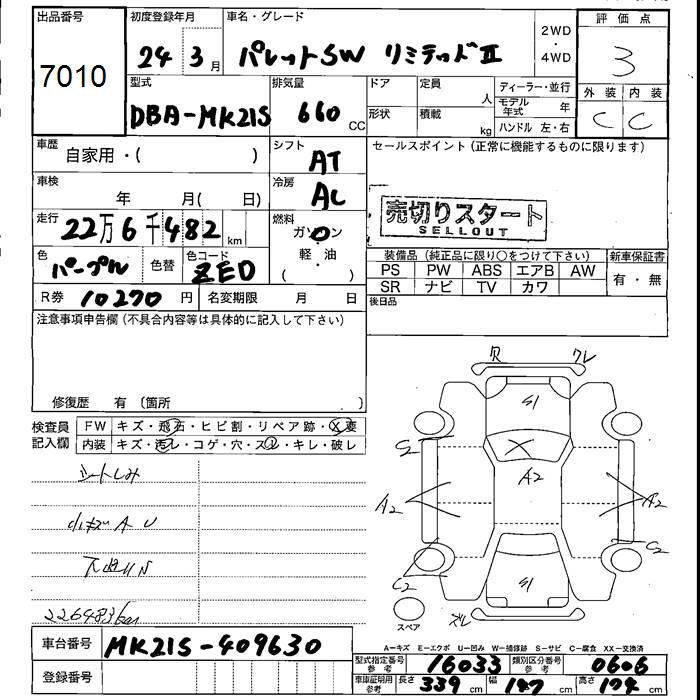 出品番号
7010
初度登録年月
24 3月
車名・グレード
パレットSW リミテッドII
2WD
・
4WD
評価点
3
型式
DBA-MK21S
排気量
660 CC
ドア
形状
定員 人
積載 kg
ディーラー・並行
モデル年式 年
ハンドル 左・右
外装 内装
C C
車歴
自家用・( )
シフト
AT
セールスポイント(正常に機能するものに限ります)
車検
年 月( 日)
冷房
AC
売切りスタート
SELLOUT
走行
22万6千482km
燃料
ガソリン
・
軽・油
( )
装備品(純正品に限り○をつけて下さい)
新車保証書
PS PW ABS エアB AW
有・無
SR ナビ TV カワ
色
パープル
色替
色コード
ZED
R券 10270円
名変期限 月 日
後日品
注意事項申告欄(不具合内容等は具体的に記入して下さい)
修復歴 有(箇所 )
検査員
記入欄
FW キズ・飛石・ヒビ割・リペア跡・X要
内装 キズ・汚レ・コゲ・穴・スレ・キレ・破レ
シートしみ
小キズA U
226483km
S1
A2
A2
A2
C2
C2
C2
S1
スペア
A=キズ E=エクボ U=凹み W=補修跡 S=サビ C=腐食 XX=交換済
車台番号
MK21S-409630
登録番号
型式指定番号
参考
16033
類別区分番号
参考
0606
車庫証明用
参考
長さ 339 cm 幅 147 cm 高さ 174 cm